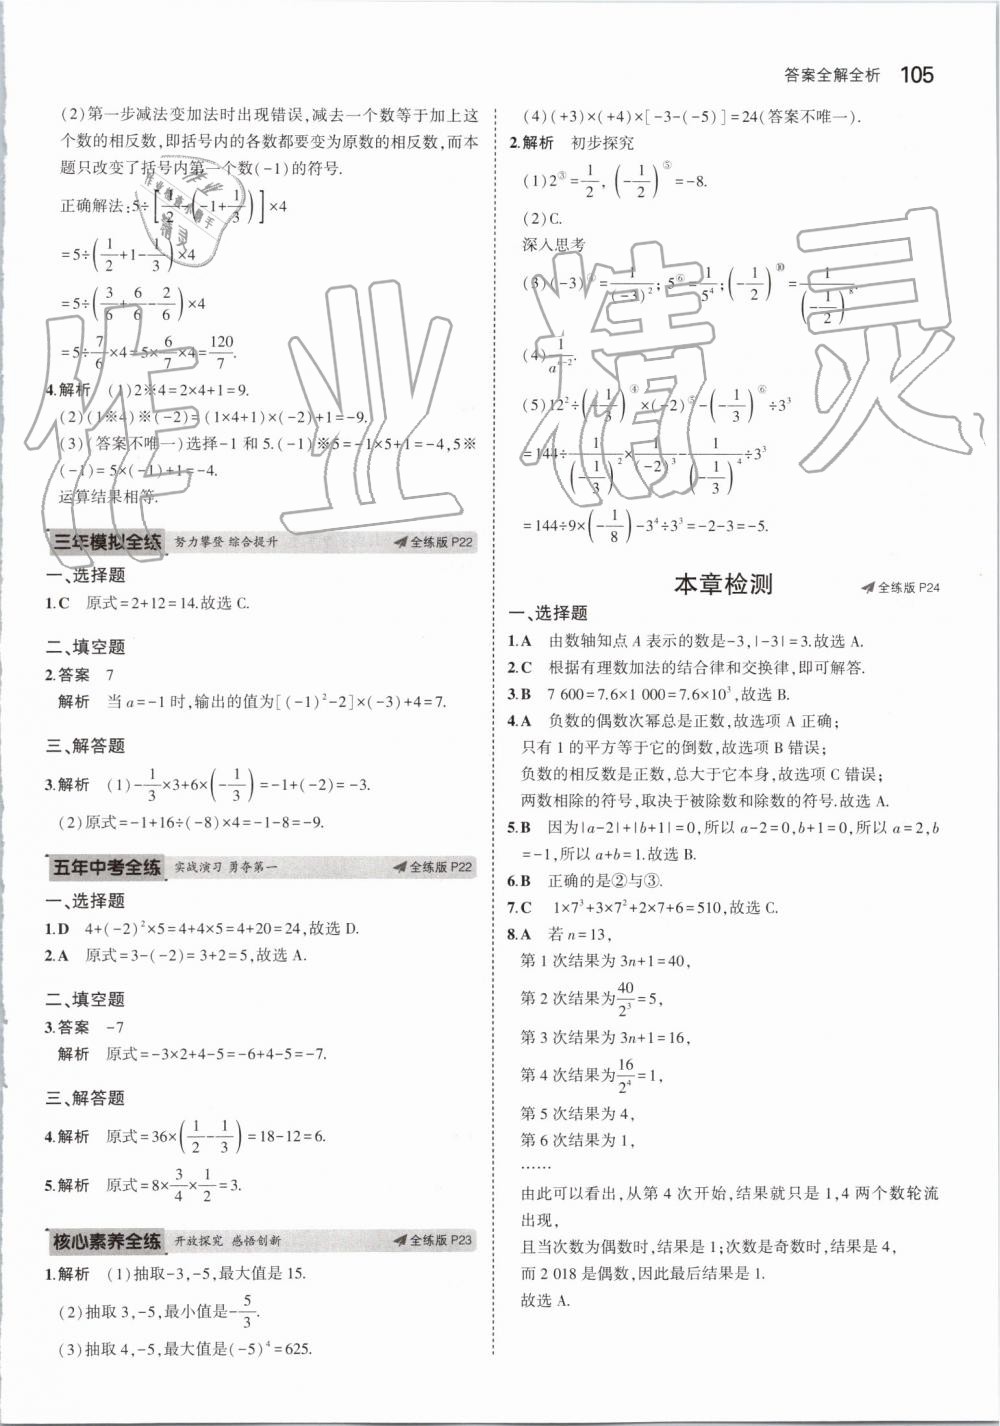 答案全解全析 105
(2)第一步减法变加法时出现错误,减去一个数等于加上这
个数的相反数,即括号内的各数都要变为原数的相反数,而本
题只改变了括号内第一个数(-1)的符号.
正确解法:5÷[1/2-(-1+1/3)]×4
=5÷(1/2+1-1/3)×4
=5÷(3/6+6/6-2/6)×4
=5÷7/6×4=5×6/7×4=120/7.
4.解析 (1)2※4=2×4+1=9.
(2)(1※4)※(-2)=(1×4+1)×(-2)+1=-9.
(3)(答案不唯一)选择-1和5.(-1)※5=-1×5+1=-4,5※
(-1)=5×(-1)+1=-4.
运算结果相等.
三年模拟全练 努力攀登 综合提升 全练版 P22
一、选择题
1.C 原式=2+12=14.故选C.
二、填空题
2.答案 7
解析 当a=-1时,输出的值为[(-1)²-2]×(-3)+4=7.
三、解答题
3.解析 (1)-1/3×3+6×(-1/3)=-1+(-2)=-3.
(2)原式=-1+16÷(-8)×4=-1-8=-9.
五年中考全练 实战演习 勇夺第一 全练版 P22
一、选择题
1.D 4+(-2)²×5=4+4×5=4+20=24,故选D.
2.A 原式=3-(-2)=3+2=5,故选A.
二、填空题
3.答案 -7
解析 原式=-3×2+4-5=-6+4-5=-7.
三、解答题
4.解析 原式=36×(1/2-1/3)=18-12=6.
5.解析 原式=8×3/4×1/2=3.
核心素养全练 开放探究 感悟创新 全练版 P23
1.解析 (1)抽取-3,-5,最大值是15.
(2)抽取3,-5,最小值是-5/3.
(3)抽取4,-5,最大值是(-5)⁴=625.
(4)(+3)×(+4)×[-3-(-5)]=24(答案不唯一).
2.解析 初步探究
(1)2^③=1/2,(-1/2)^⑤=-8.
(2)C.
深入思考
(3)(-3)^④=1/(-3)²;5^⑥=1/5⁴;(-1/2)^⑩=1/(-1/2)⁸.
(4)1/aⁿ⁻².
(5)12²÷(-1/3)^④×(-2)^⑤-(-1/3)^⑥÷3³
=144÷1/(-1/3)²×1/(-2)³-1/(-1/3)⁴÷3³
=144÷9×(-1/8)-3⁴÷3³=-2-3=-5.
本章检测 全练版 P24
一、选择题
1.A 由数轴知点A表示的数是-3,|-3|=3.故选A.
2.C 根据有理数加法的结合律和交换律,即可解答.
3.B 7 600=7.6×1 000=7.6×10³,故选B.
4.A 负数的偶数次幂总是正数,故选项A正确;
只有1的平方等于它的倒数,故选项B错误;
负数的相反数是正数,总大于它本身,故选项C错误;
两数相除的符号,取决于被除数和除数的符号.故选A.
5.B 因为|a-2|+|b+1|=0,所以a-2=0,b+1=0,所以a=2,b
=-1,所以a+b=1.故选B.
6.B 正确的是②与③.
7.C 1×7³+3×7²+2×7+6=510,故选C.
8.A 若n=13,
第1次结果为3n+1=40,
第2次结果为40/2³=5,
第3次结果为3n+1=16,
第4次结果为16/2⁴=1,
第5次结果为4,
第6次结果为1,
……
由此可以看出,从第4次开始,结果就只是1,4两个数轮流
出现,
且当次数为偶数时,结果是1;次数是奇数时,结果是4,
而2 018是偶数,因此最后结果是1.
故选A.
作业精灵